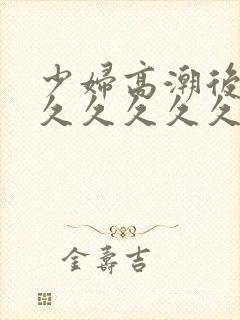 少婦高潮後
久久久久久
金壽吉